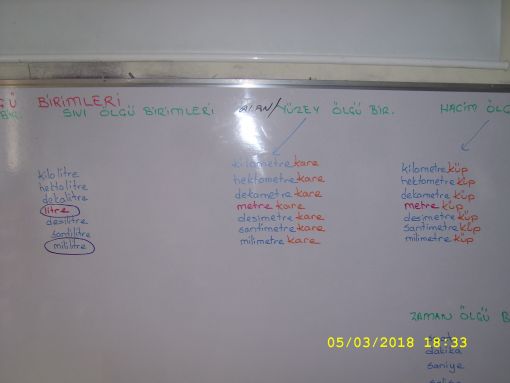 ÇÜ BİRİMLERİ
BİR.
SIVI ÖLÇÜ BİRİMLERİ
ALAN/YÜZEY ÖLÇÜ BİR.
HACİM ÖLÇ
kilolitre
hektolitre
dekalitre
litre
desilitre
santilitre
mililitre
kilometrekare
hektometrekare
dekametrekare
metrekare
desimetrekare
santimetrekare
milimetrekare
kilometreküp
hektometreküp
dekametreküp
metreküp
desimetreküp
santimetreküp
milimetreküp
ZAMAN ÖLÇÜ B
dakika
saniye
05/03/2018 18:33